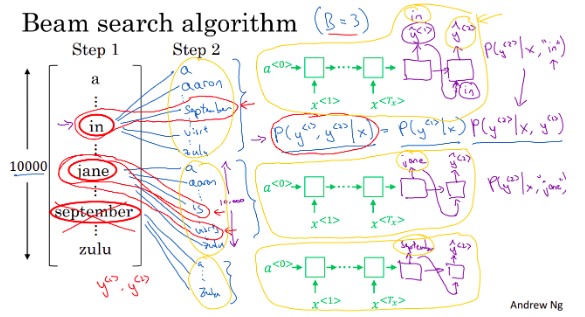 Beam search algorithm (B = 3)
Step 1
Step 2
10000
a
⋮
in
⋮
jane
⋮
september
⋮
zulu
y<1>, y<2>
a
aaron
⋮
september
⋮
visit
⋮
zulu
a
aaron
⋮
is
⋮
visits
zulu
10,000
a
⋮
zulu
a<0>
x<1>
x<Tx>
in
ŷ<1>
ŷ<2>
in
P(y<2>|x, "in")
P(y<1>, y<2>|x) = P(y<1>|x) P(y<2>|x, y<1>)
a<0>
x<1>
x<Tx>
jane
ŷ<2>
P(y<2>|x, "jane")
a<0>
x<1>
x<Tx>
september
ŷ<2>
Andrew Ng